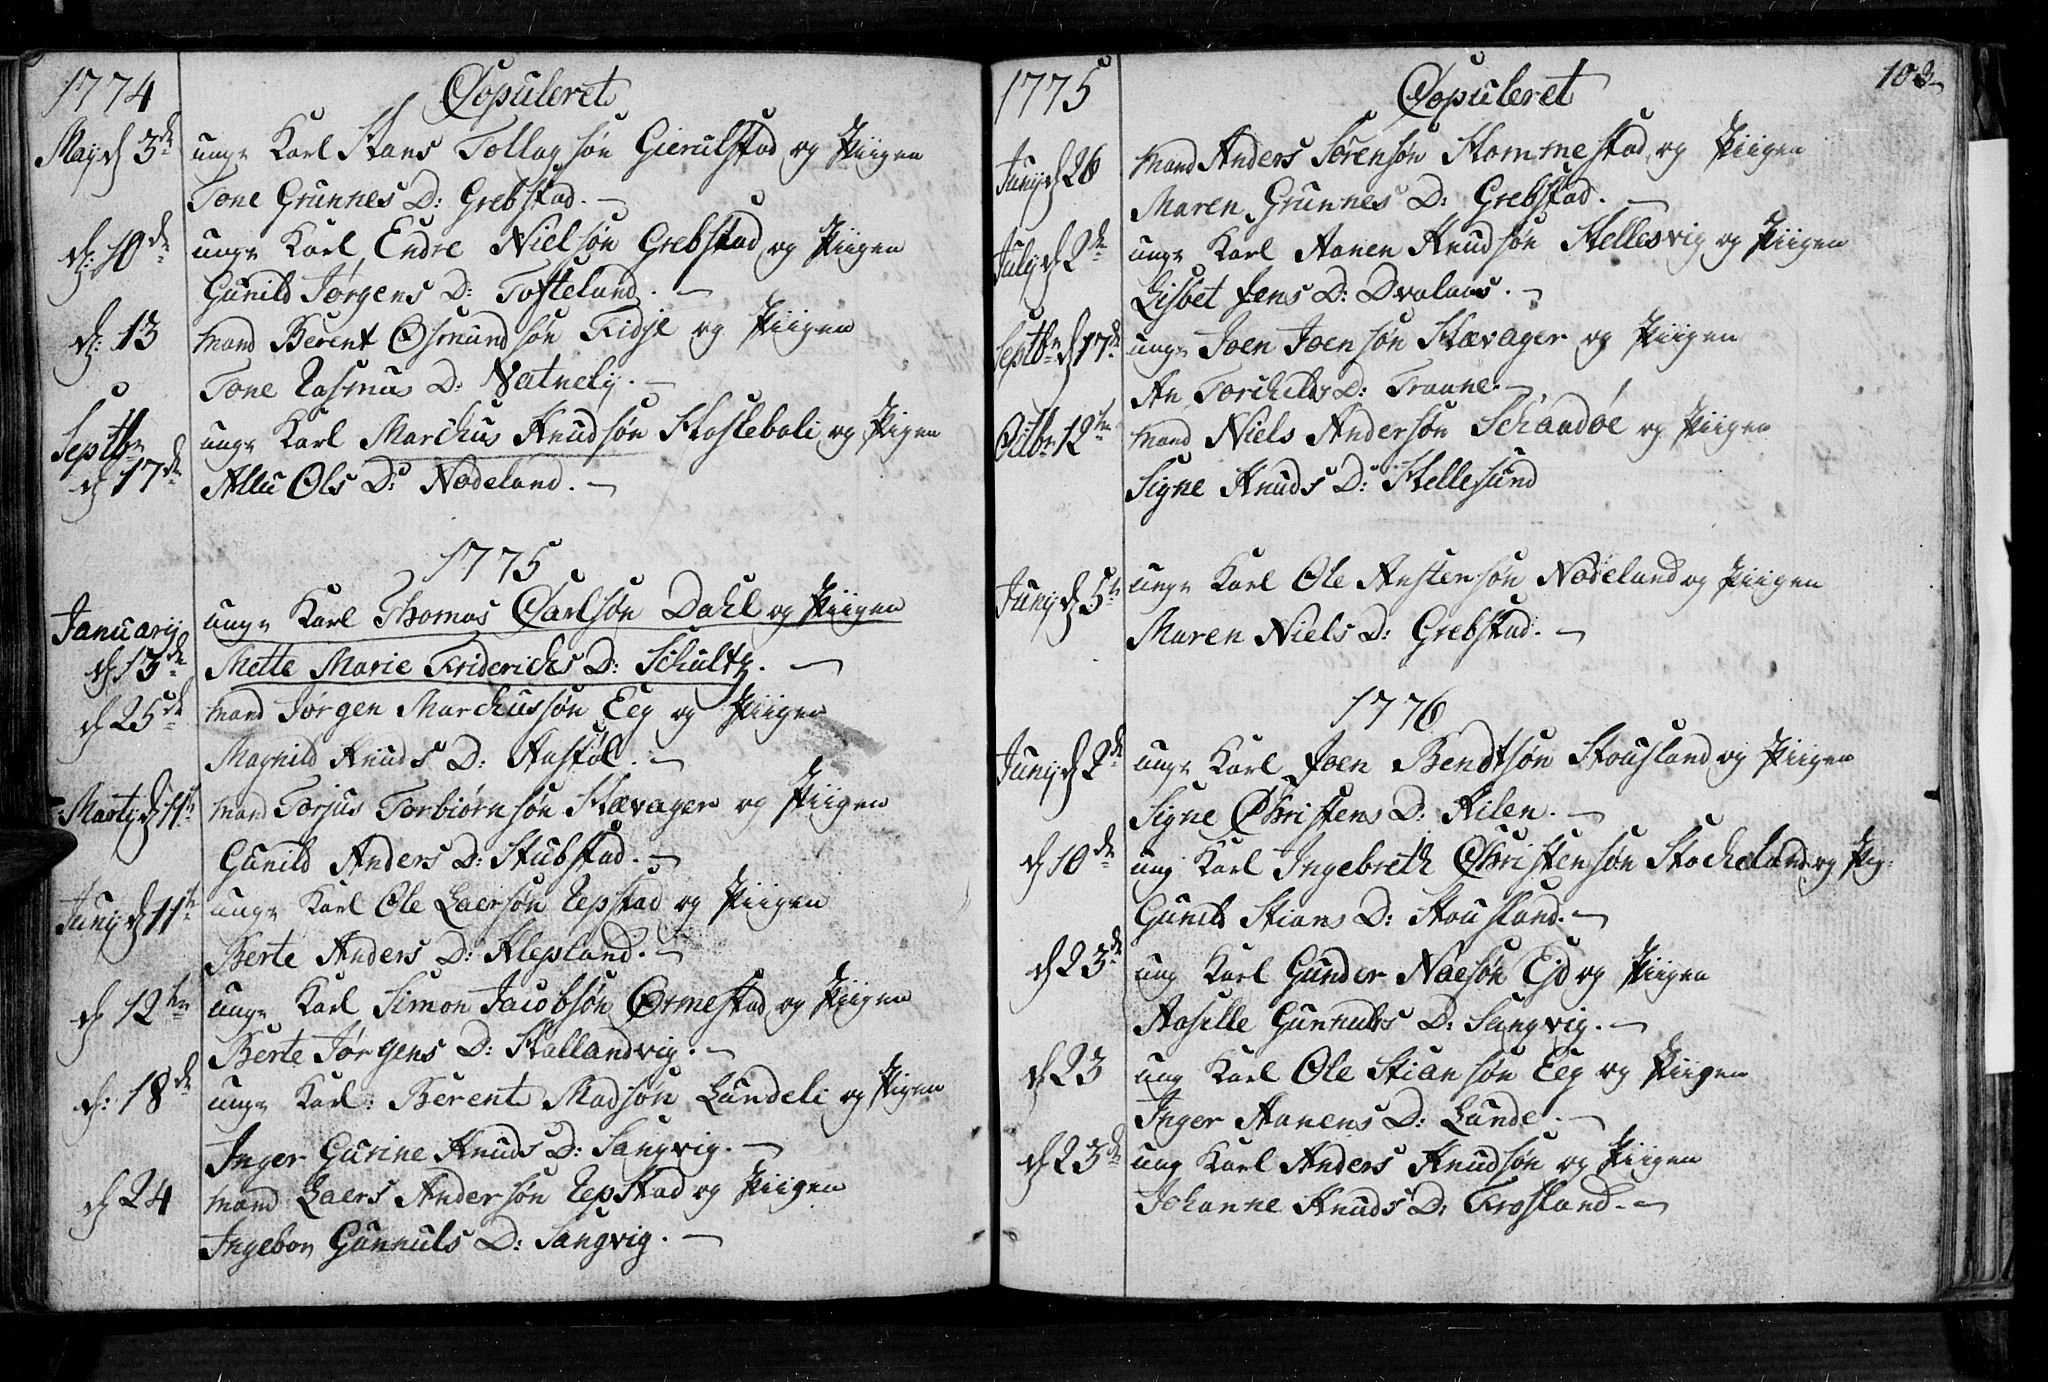 1774
Copuleret
May d 3de
unge Karl Hans Tollag søn Gierulstad og Piigen
Tone Grunnes D: Grebstad.
d: 10de
unge Karl Endre Nielsøn Grebstad og Piigen
Gunild Jørgens D: Tofteland.
d: 13
Mand Berent Osmund søn Fidje og Piigen
Tone Rasmus D: Natneliy.
Septbr d 17de
unge Karl Marchus Knudsøn Skoglebali og Pigen
Allu Ols D: Nodeland.
1775
January d 13de
unge Karl Thomas Carlsøn Dahl og Piigen
Mette Marie Friderichs D: Schultz.
d 25de
Mand Jørgen Marchussøn Eeg og Piigen
Magnild Knuds D: Austøl.
Marty d 11te
Mand Torjus Torbiørnsøn Skævager og Piigen
Gunild Anders D: Stubstad.
Juny d 11te
unge Karl Ole Laersøn Repstad og Piigen
Berte Anders D: Klepland.
d 12te
unge Karl Simon Jacobsøn Ormestad og Piigen
Berte Jørgens D: Stallandvig.
d: 18de
unge Karl: Berent Madsøn Lundeli og Pigen
Inger Gurine Knuds D: Sangvig.
d 24
Mand Laers Andersøn Repstad og Piigen
Ingebor Gunnuls D: Sangvig.
1775
Copuleret
103
Juny d 26
Mand Anders Sørensøn Homme stad og Piigen
Maren Grunnes D: Grebstad.
July d 2de
unge Karl Aanen Knudsøn Hellesvig og Piigen
Lisbet Jens D: Dvalaas.
Septbr d 17de
unge Joen Joensøn Skævager og Piigen
An Torchilds D: Traane.
Octbr 12te
Mand Niels Andersøn Schandøe og Piigen
Signe Knuds D: Hellesund
Juny d 5te
unge Karl Ole Austensøn Nodeland og Piigen
Maren Niels D: Grebstad.
1776
Juny d 2de
unge Karl Joen Bendtsøn Stousland og Piigen
Signe Christens D: Kilen.
d 10de
ung Karl Ingebreth Christensøn Stocheland og Pig:
Gunild Stians D: Stousland.
d 23de
ung Karl Gunder Næsøn Ejd og Piigen
Aasille Gunnuls D: Sangvig.
d 23
ung Karl Ole Stiansøn Eeg og Piigen
Inger Aanens D: Lunde.
d 23de
ung Karl Anders Knudsøn og Piigen
Johanne Knuds D: Frøsland.